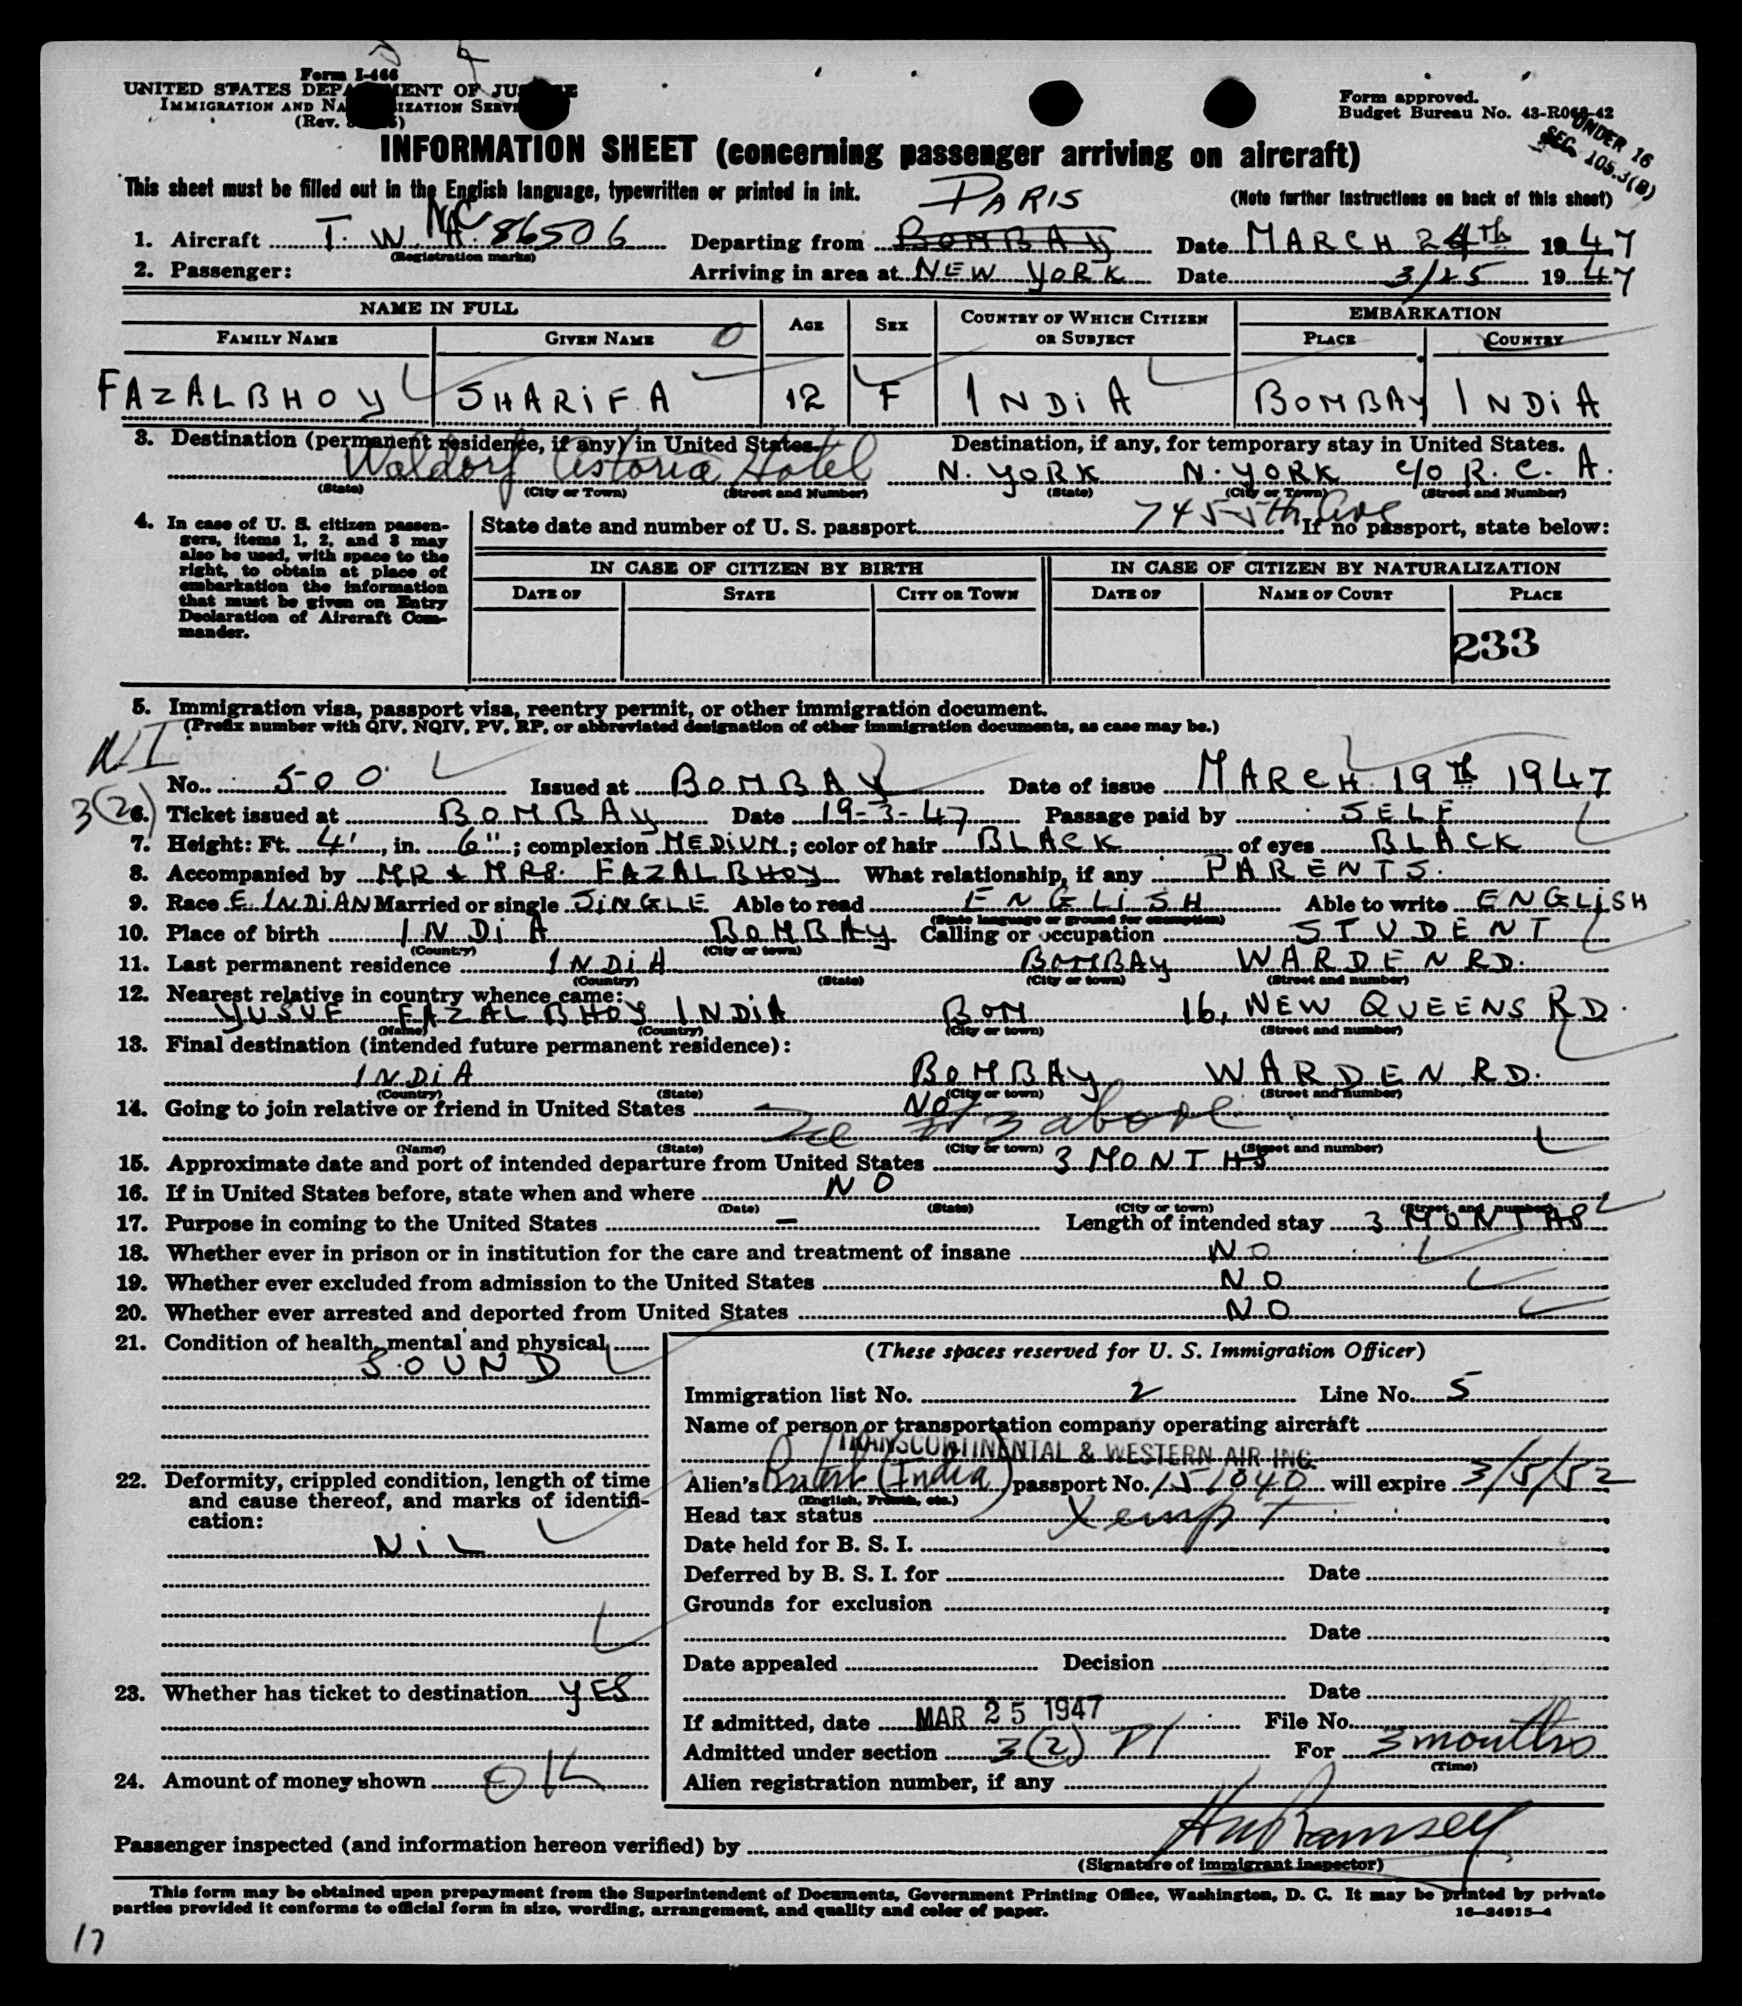 Form I-466
UNITED STATES DEPARTMENT OF JUSTICE
IMMIGRATION AND NATURALIZATION SERVICE
(Rev.
Form approved.
Budget Bureau No. 43-R063-42
UNDER 16
SEC. 105.3(B)
INFORMATION SHEET (concerning passenger arriving on aircraft)
This sheet must be filled out in the English language, typewritten or printed in ink.
(Note further instructions on back of this sheet)
PARIS
1. Aircraft T. W. A. NC 86506 Departing from BOMBAY Date MARCH 24th 1947
(Registration marks)
2. Passenger: Arriving in area at NEW YORK Date 3/25 1947
NAME IN FULL AGE SEX COUNTRY OF WHICH CITIZEN OR SUBJECT EMBARKATION
FAMILY NAME GIVEN NAME PLACE COUNTRY
FAZALBHOY SHARIFA 12 F INDIA BOMBAY INDIA
3. Destination (permanent residence, if any) in United States. Destination, if any, for temporary stay in United States.
Waldorf Astoria Hotel N. YORK N. YORK c/o R. C. A.
(State) (City or Town) (Street and Number) (State) (City or Town) (Street and Number)
745-5th Ave
4. In case of U. S. citizen passengers, items 1, 2, and 3 may also be used, with space to the right, to obtain at place of embarkation the information that must be given on Entry Declaration of Aircraft Commander.
State date and number of U. S. passport If no passport, state below:
IN CASE OF CITIZEN BY BIRTH IN CASE OF CITIZEN BY NATURALIZATION
DATE OF STATE CITY OR TOWN DATE OF NAME OF COURT PLACE
233
5. Immigration visa, passport visa, reentry permit, or other immigration document.
(Prefix number with QIV, NQIV, PV, RP, or abbreviated designation of other immigration documents, as case may be.)
No. 500 Issued at BOMBAY Date of issue MARCH 19th 1947
3(2)
6. Ticket issued at BOMBAY Date 19-3-47 Passage paid by SELF
7. Height: Ft. 4', in. 6"; complexion MEDIUM; color of hair BLACK of eyes BLACK
8. Accompanied by MR & MRS. FAZALBHOY What relationship, if any PARENTS.
9. Race E. INDIAN Married or single SINGLE Able to read ENGLISH Able to write ENGLISH
(State language or ground for exemption)
10. Place of birth INDIA BOMBAY Calling or occupation STUDENT
(Country) (City or town)
11. Last permanent residence INDIA BOMBAY WARDEN RD.
(Country) (State) (City or town) (Street and number)
12. Nearest relative in country whence came:
YUSUF FAZALBHOY INDIA BOM 16, NEW QUEENS RD.
(Name) (Country) (City or town) (Street and number)
13. Final destination (intended future permanent residence):
INDIA BOMBAY WARDEN RD.
(Country) (State) (City or town) (Street and number)
14. Going to join relative or friend in United States NO
See #3 above
(Name) (State) (City or town) (Street and number)
15. Approximate date and port of intended departure from United States 3 MONTHS
16. If in United States before, state when and where NO
(Date) (State) (City or town) (Street and number)
17. Purpose in coming to the United States - Length of intended stay 3 MONTHS
18. Whether ever in prison or in institution for the care and treatment of insane NO
19. Whether ever excluded from admission to the United States NO
20. Whether ever arrested and deported from United States NO
21. Condition of health, mental and physical
SOUND
22. Deformity, crippled condition, length of time and cause thereof, and marks of identification:
NIL
23. Whether has ticket to destination YES
24. Amount of money shown OK
(These spaces reserved for U. S. Immigration Officer)
Immigration list No. 2 Line No. 5
Name of person or transportation company operating aircraft
TRANSCONTINENTAL & WESTERN AIR INC.
Alien's British (India) passport No. 151040 will expire 3/5/52
(English, French, etc.)
Head tax status Xempt
Date held for B. S. I.
Deferred by B. S. I. for Date
Grounds for exclusion
Date
Date appealed Decision
Date
If admitted, date MAR 25 1947 File No.
Admitted under section 3(2) For 3 months
(Time)
Alien registration number, if any
Passenger inspected (and information hereon verified) by Ramsey
(Signature of immigrant inspector)
This form may be obtained upon prepayment from the Superintendent of Documents, Government Printing Office, Washington, D. C. It may be printed by private
parties provided it conforms to official form in size, wording, arrangement, and quality and color of paper.
16-24915-4
17